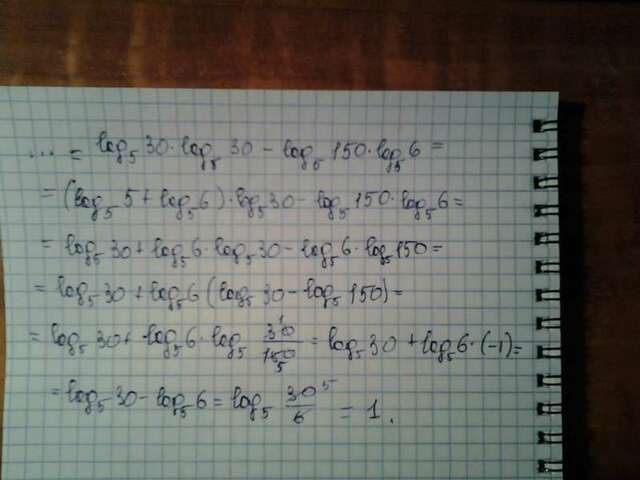 ... = log₅ 30 · log₅ 30 − log₅ 150 · log₅ 6 =
= (log₅ 5 + log₅ 6) · log₅ 30 − log₅ 150 · log₅ 6 =
= log₅ 30 + log₅ 6 · log₅ 30 − log₅ 6 · log₅ 150 =
= log₅ 30 + log₅ 6 (log₅ 30 − log₅ 150) =
= log₅ 30 + log₅ 6 · log₅ 30/150 1 5 = log₅ 30 + log₅ 6 · (−1) =
= log₅ 30 − log₅ 6 = log₅ 30/6 5 = 1.